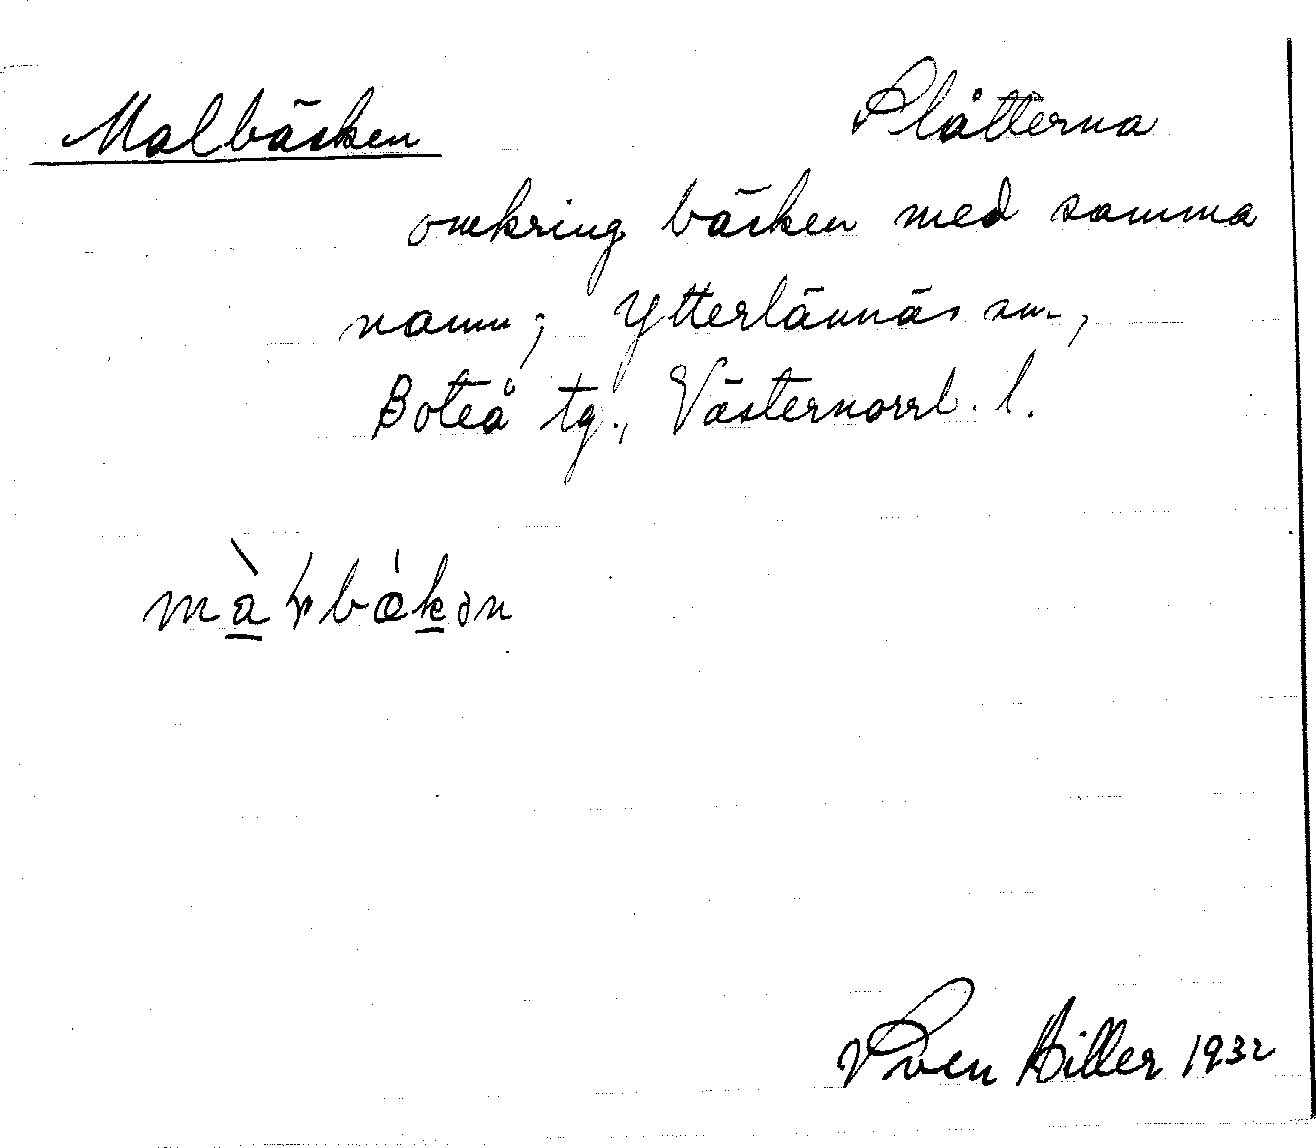 Malbäcken Slåtterna
omkring bäcken med samma
namn; Ytterlännäs sn.,
Boteå tg., Västernorrl. l.
Sven Hiller 1932